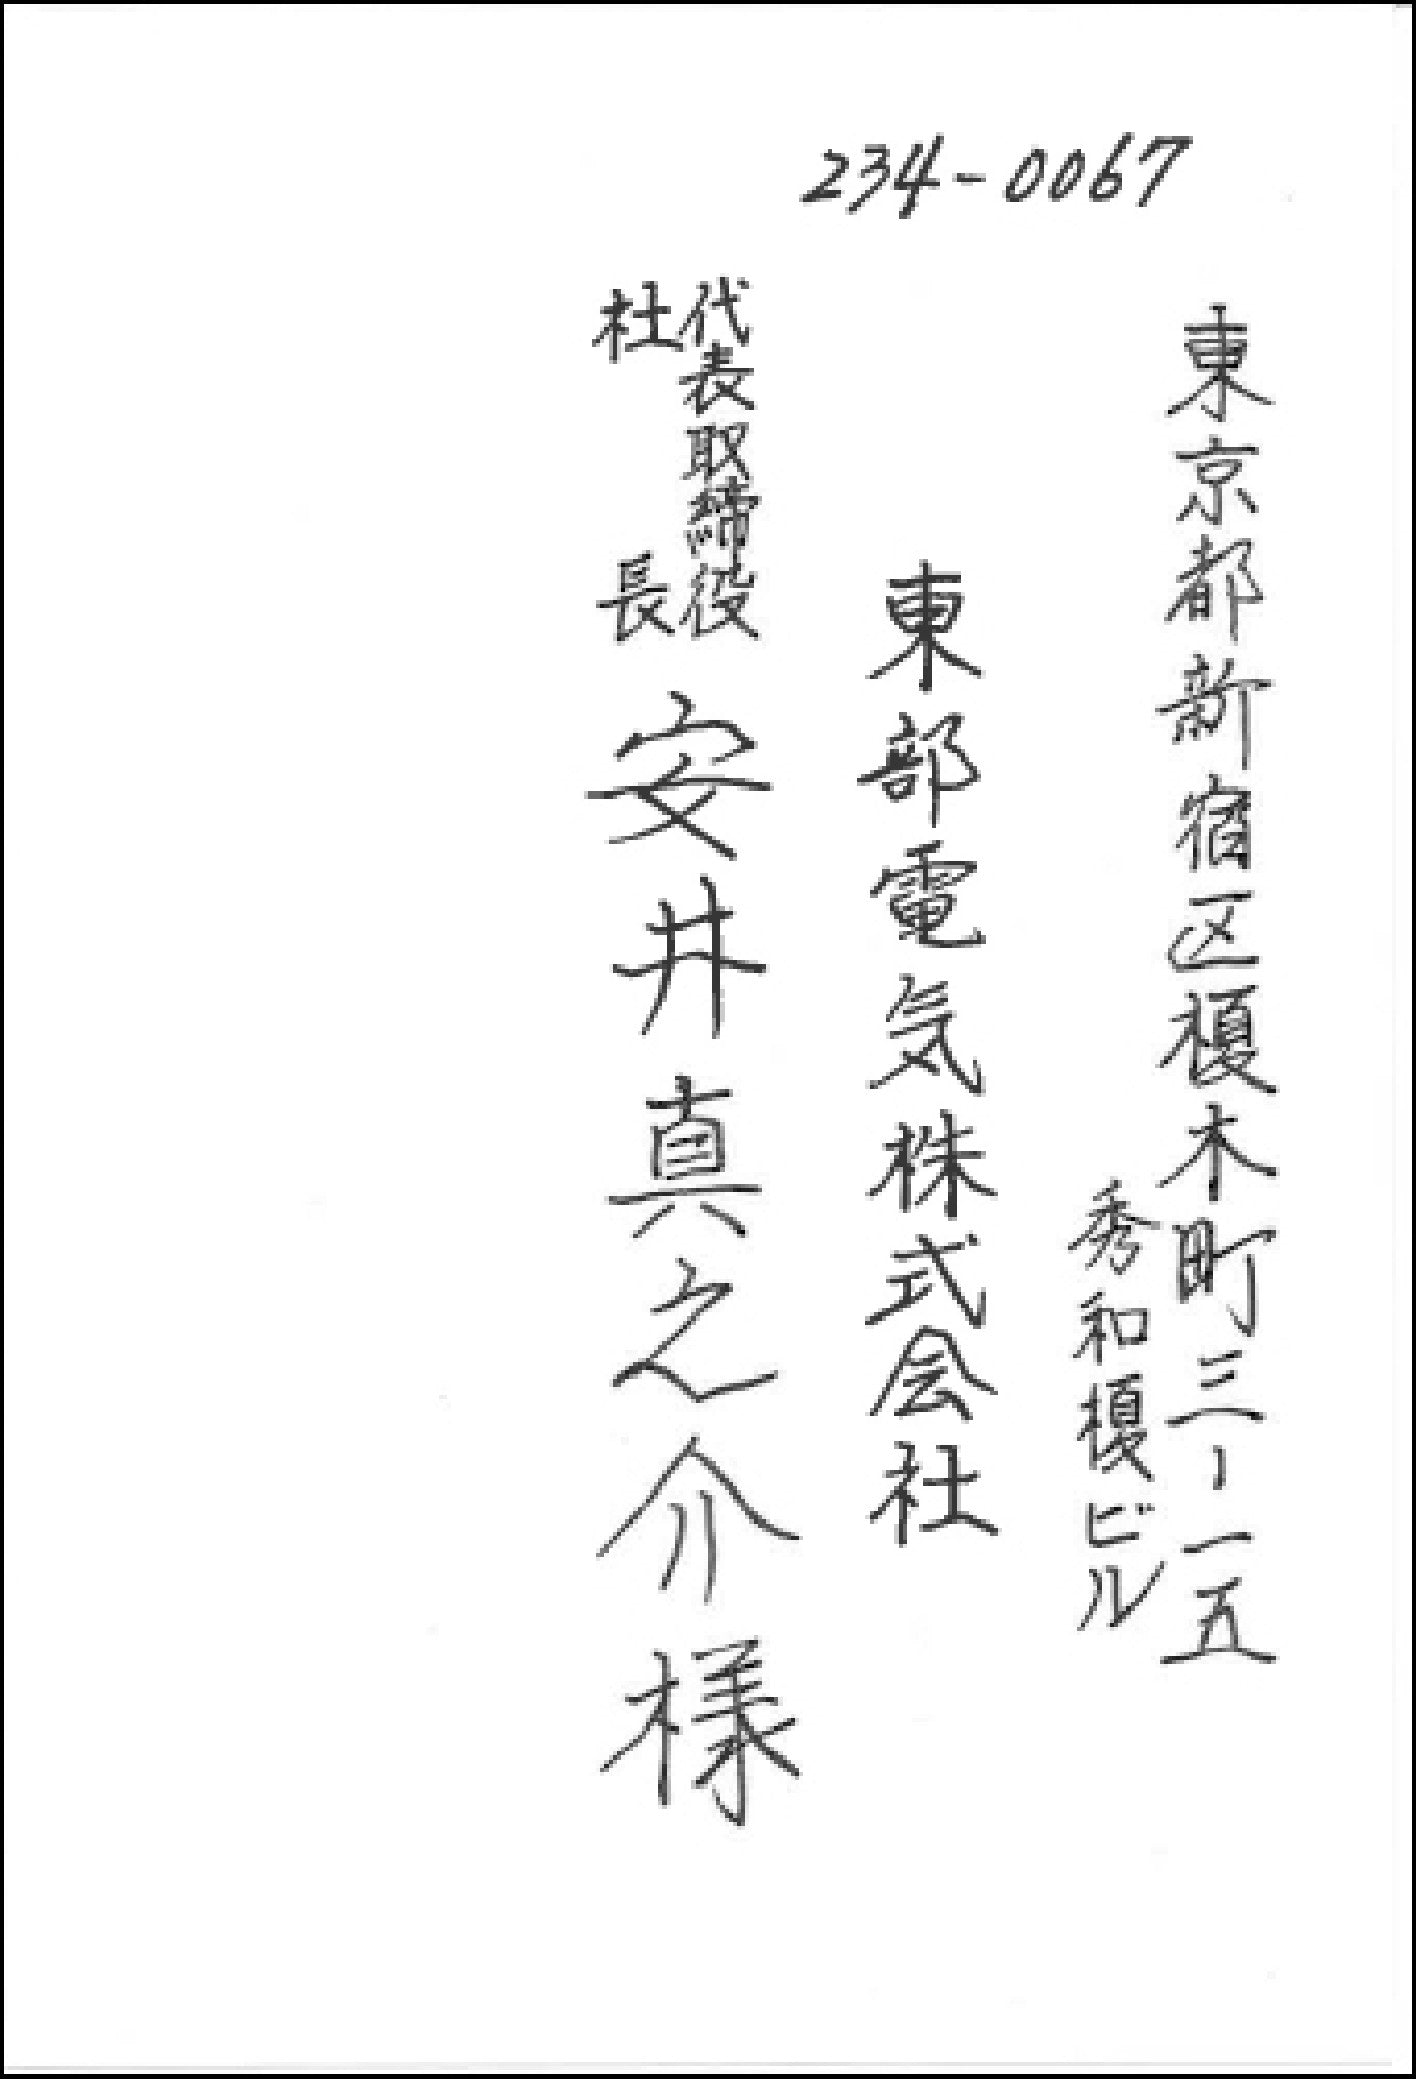 234-0067
東京都新宿区榎木町三-一五
秀和榎ビル
東部電気株式会社
代表取締役
社長
安井真之介様